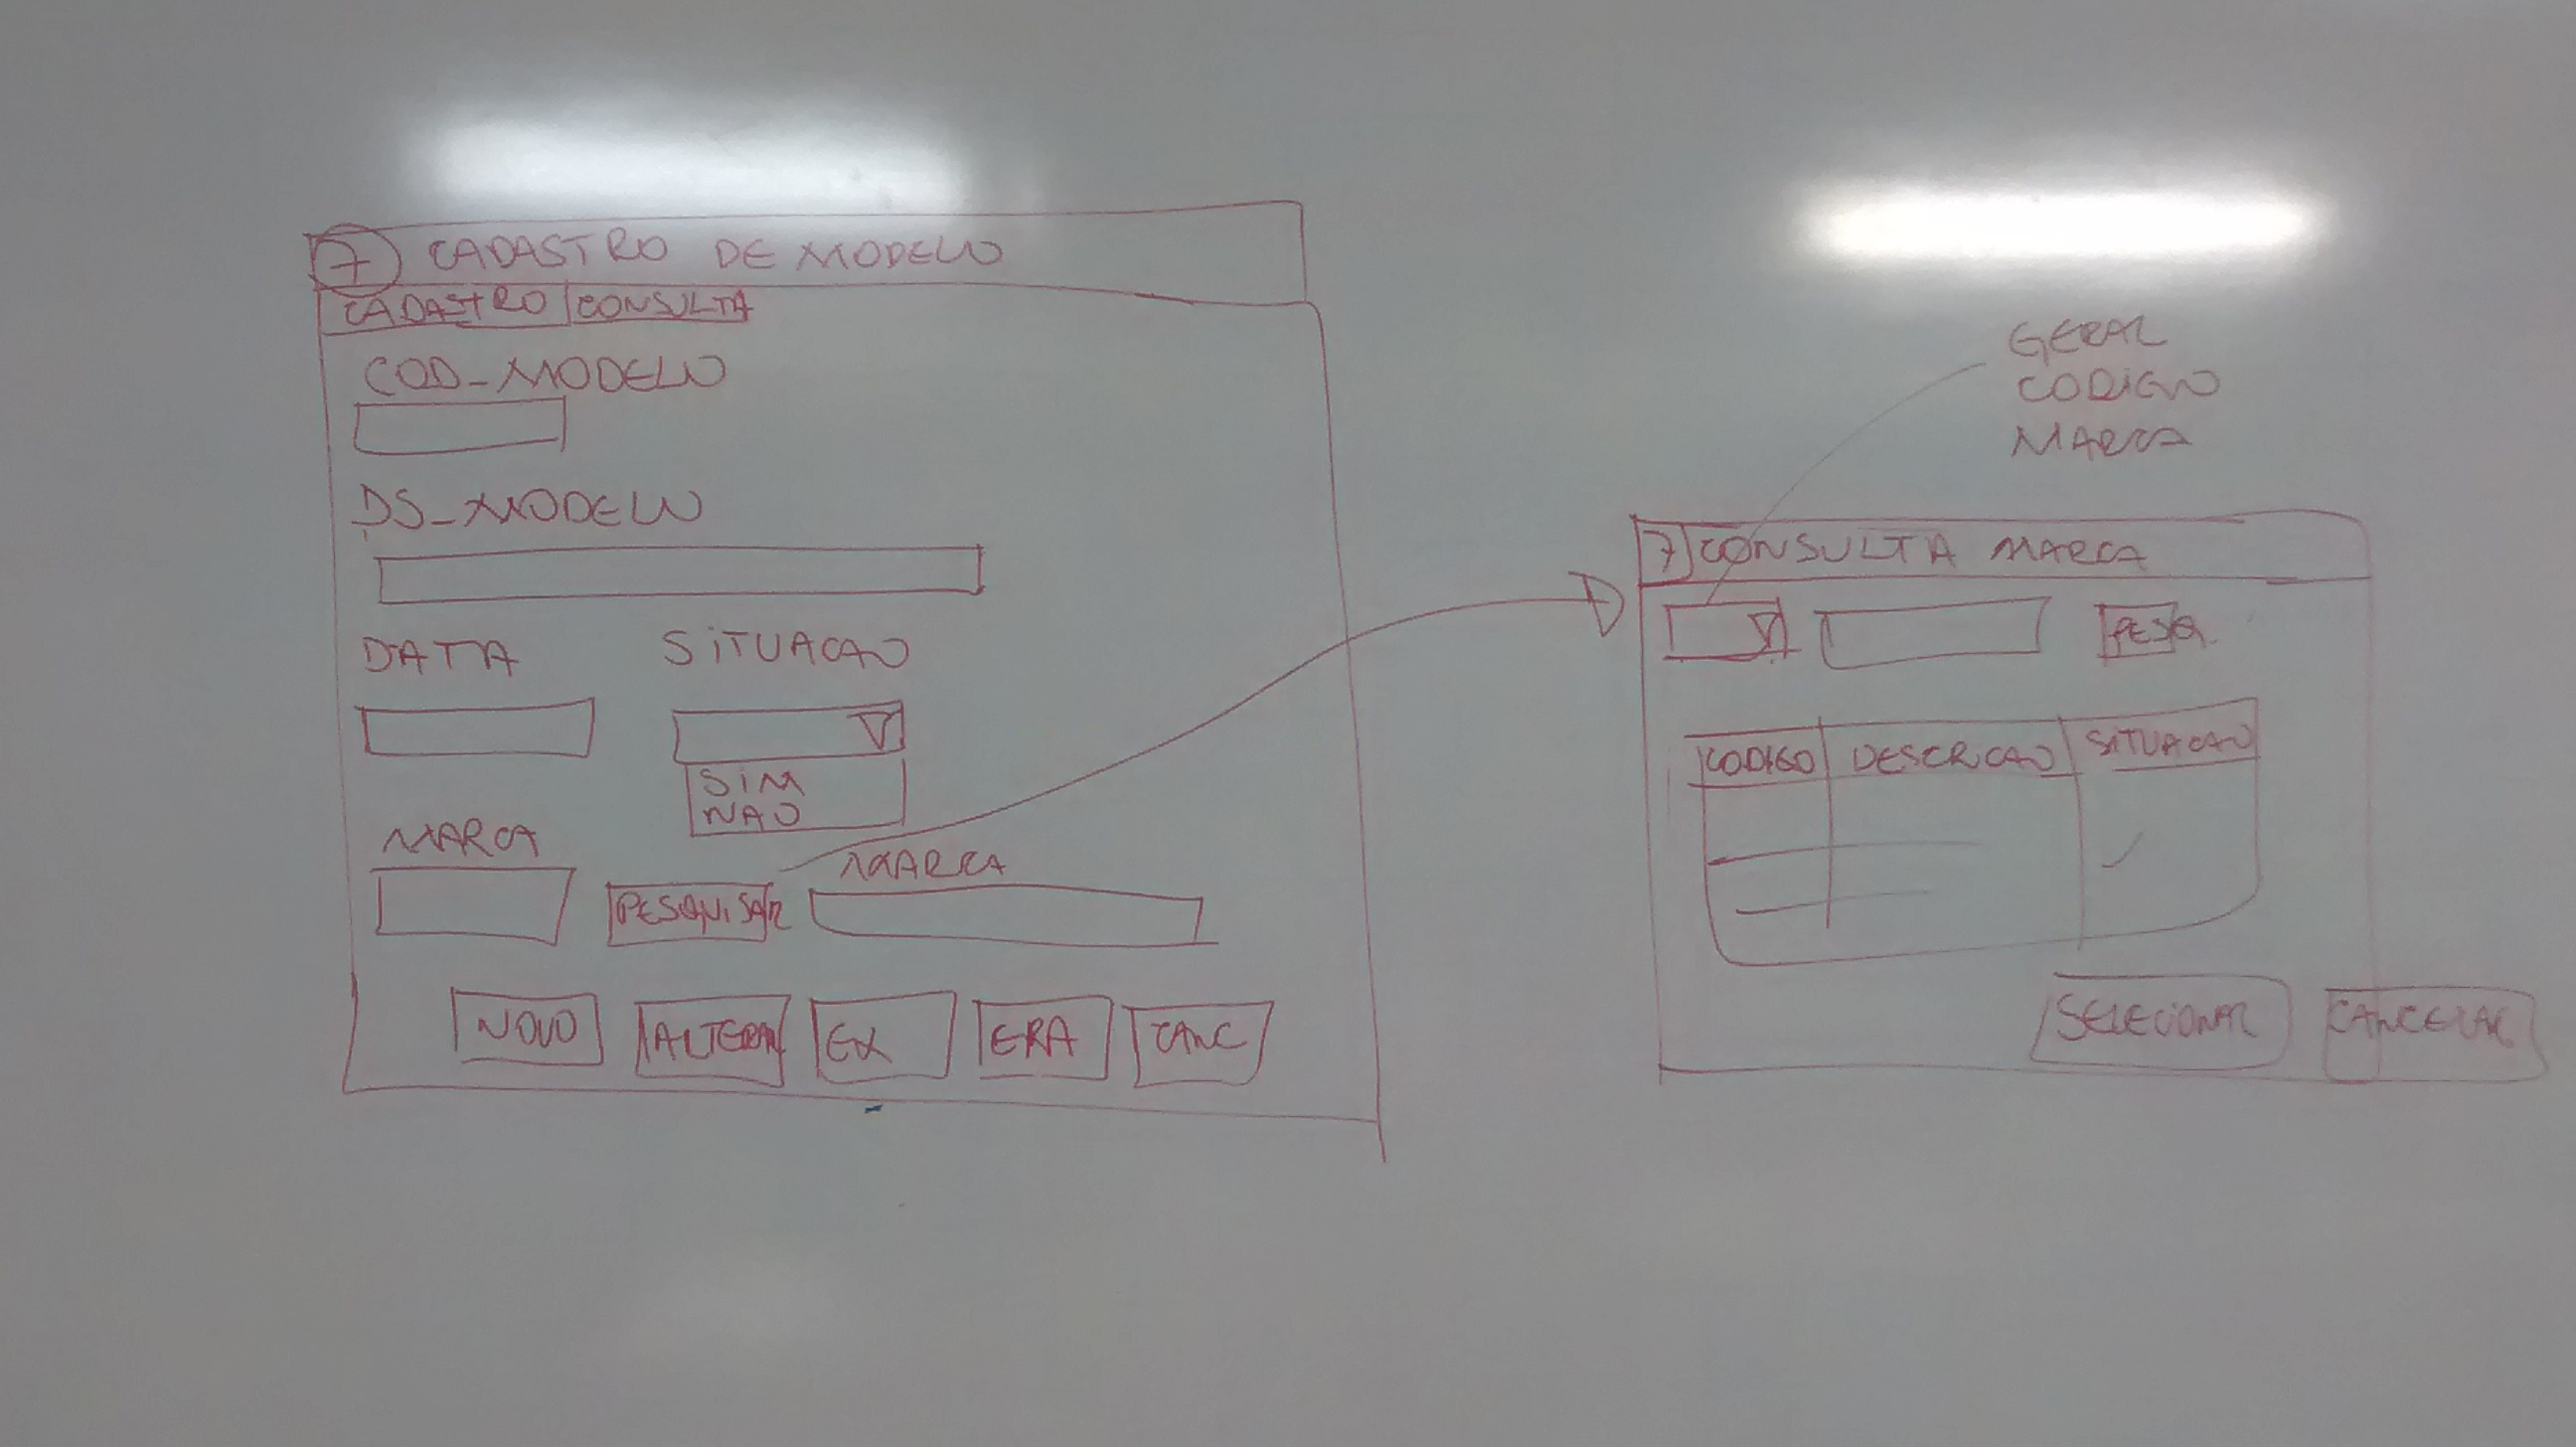 7 CADASTRO DE MODELO
CADASTRO CONSULTA
COD_MODELO
DS_MODELO
DATA SITUACAO
SIM
NAO
MARCA
PESQUISAR
MARCA
NOVO ALTERAR EX ERA CANC
GERAL
CODIGO
MARCA
7 CONSULTA MARCA
PESQ
CODIGO DESCRICAO SITUACAO
SELECIONAR CANCELAR